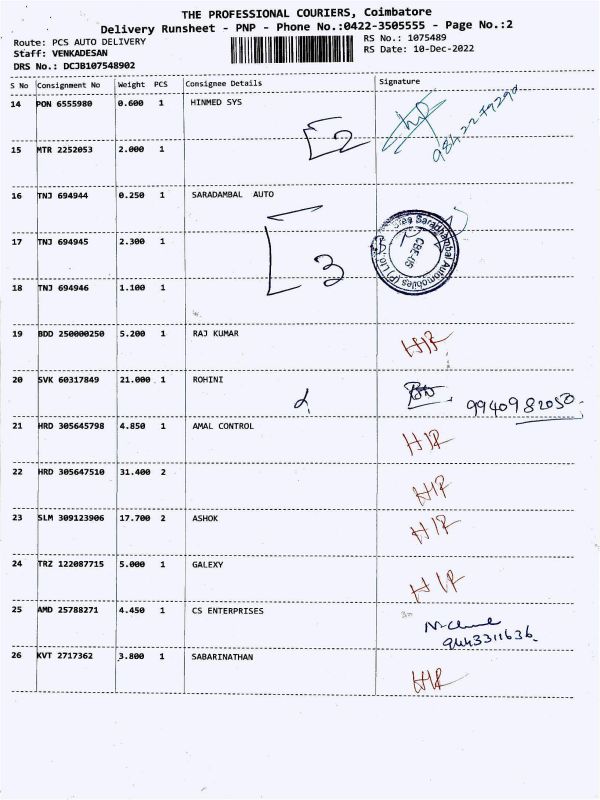 THE PROFESSIONAL COURIERS, Coimbatore
Delivery Runsheet - PNP - Phone No.:0422-3505555 - Page No.:2
Route: PCS AUTO DELIVERY RS No.: 1075489
Staff: VENKADESAN RS Date: 10-Dec-2022
DRS No.: DCJB107548902
S No Consignment No Weight PCS Consignee Details Signature
14 PON 6555980 0.600 1 HINMED SYS
2
15 MTR 2252053 2.000 1
16 TNJ 694944 0.250 1 SARADAMBAL AUTO
17 TNJ 694945 2.300 1
3
Sree Saradhambal Automobiles (P) Ltd.
CBE-05
18 TNJ 694946 1.100 1
19 BDD 250000250 5.200 1 RAJ KUMAR HIR
20 SVK 60317849 21.000 1 ROHINI 9940982050
21 HRD 305645798 4.850 1 AMAL CONTROL HIR
22 HRD 305647510 31.400 2 HIR
23 SLM 309123906 17.700 2 ASHOK HIR
24 TRZ 122087715 5.000 1 GALEXY HIR
25 AMD 25788271 4.450 1 CS ENTERPRISES
9443311636
26 KVT 2717362 3.800 1 SABARINATHAN HIR